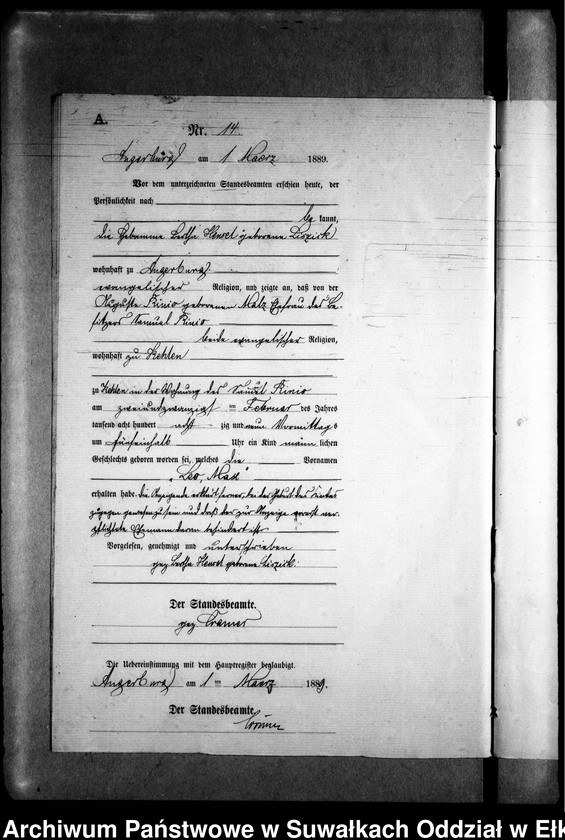 A.
Nr. 14.
Angerburg am 1 Maerz 1889.
Vor dem unterzeichneten Standesbeamten erschien heute, der
Persönlichkeit nach
be kannt,
die Hebamme Bertha Hensel geborene
wohnhaft zu Angerburg
evangelischer Religion, und zeigte an, daß von der
Auguste Kinio geborenen Matz Ehefrau des Be-
sitzers Samuel Kinio
beide evangelischer Religion,
wohnhaft zu Kehlen
zu Kehlen in der Wohnung des Samuel Kinio
am zweiundzwanzigsten Februar des Jahres
tausend acht hundert acht zig und neun Vormittags
um fünfeinhalb Uhr ein Kind männ lichen
Geschlechts geboren worden sei, welches die Vornamen
"Leo, Max"
erhalten habe. die Anzeigende erklärt ferner, bei der Geburt des Kindes
zugegen gewesen zu sein und daß der zur Anzeige zuerst ver-
pflichtete Ehemann daran behindert ist.
Vorgelesen, genehmigt und unterschrieben
gez. Bertha Hensel geborene
Der Standesbeamte.
gez. Cramer
Die Uebereinstimmung mit dem Hauptregister beglaubigt.
Angerburg am 1 ten Maerz 1889.
Der Standesbeamte.
Cramer
Archiwum Państwowe w Suwałkach Oddział w Ełk